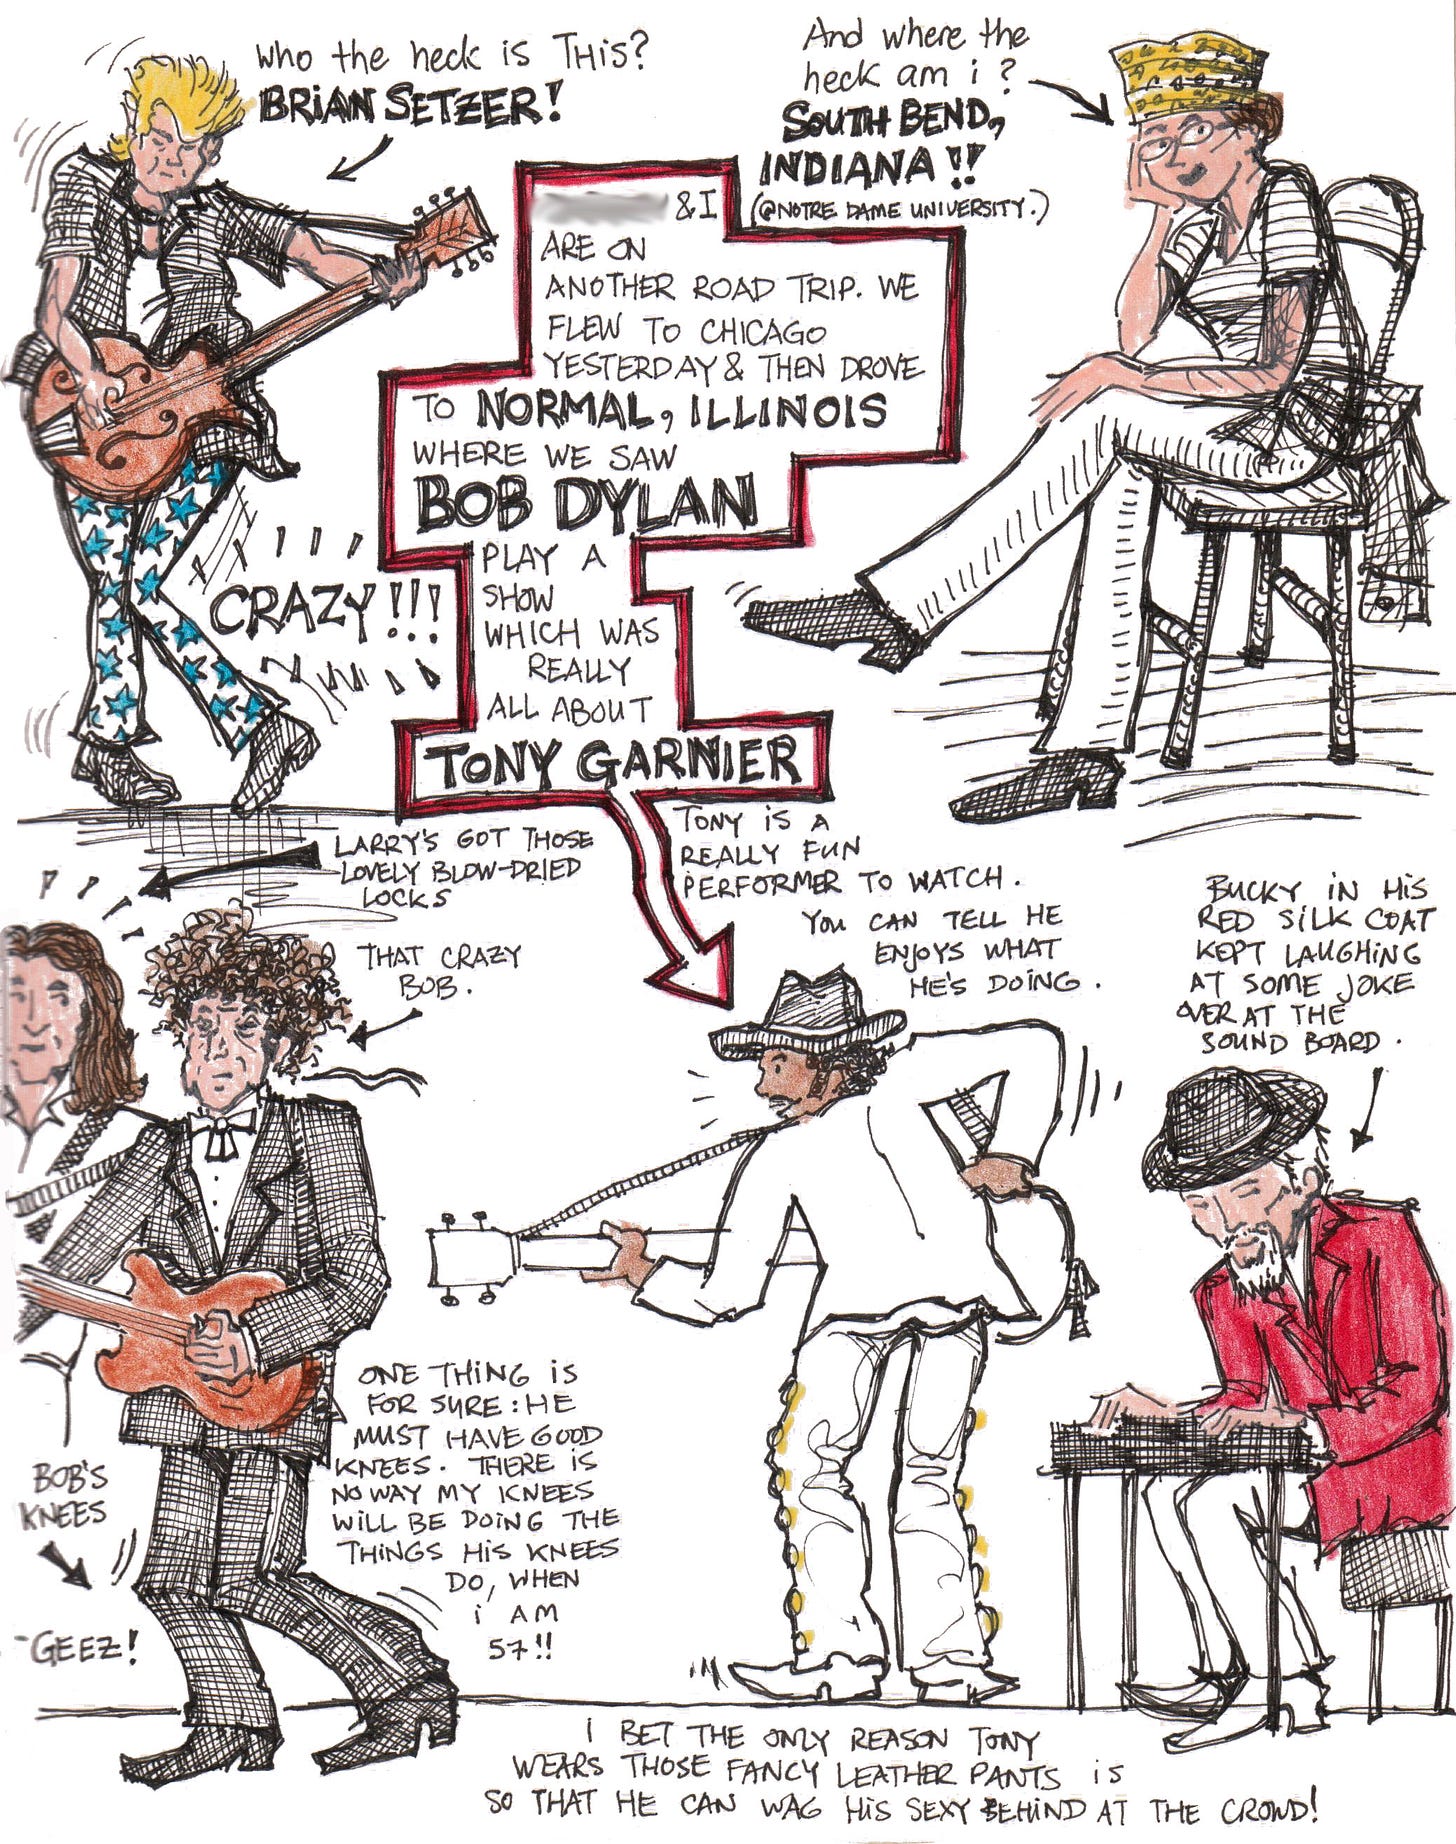 Who the heck is THiS?
BRiAN SETZER!
And where the
heck am i?
SOUTH BEND,
INDIANA!!
(@NOTRE DAME UNIVERSITY.)
& I
ARE ON
ANOTHER ROAD TRIP. WE
FLEW TO CHICAGO
YESTERDAY & THEN DROVE
TO NORMAL, ILLINOIS
WHERE WE SAW
BOB DYLAN
PLAY A
SHOW
WHICH WAS
REALLY
ALL ABOUT
TONY GARNIER
CRAZY!!!
TONY iS A
REALLY FUN
PERFORMER TO WATCH.
YOU CAN TELL HE
ENJOYS WHAT
HE'S DOING.
LARRY'S GOT THOSE
LOVELY BLOW-DRIED
LOCKS
THAT CRAZY
BOB.
BUCKY iN HiS
RED SiLK COAT
KEPT LAUGHING
AT SOME JOKE
OVER AT THE
SOUND BOARD.
ONE THiNG iS
FOR SURE: HE
MUST HAVE GOOD
KNEES. THERE iS
NO WAY MY KNEES
WiLL BE DOING THE
THINGS HiS KNEES
DO, WHEN
i AM
57!!
BOB'S
KNEES
-GEEZ!
i BET THE ONLY REASON TONY
WEARS THOSE FANCY LEATHER PANTS iS
SO THAT HE CAN WAG HiS SEXY BEHIND AT THE CROWD!